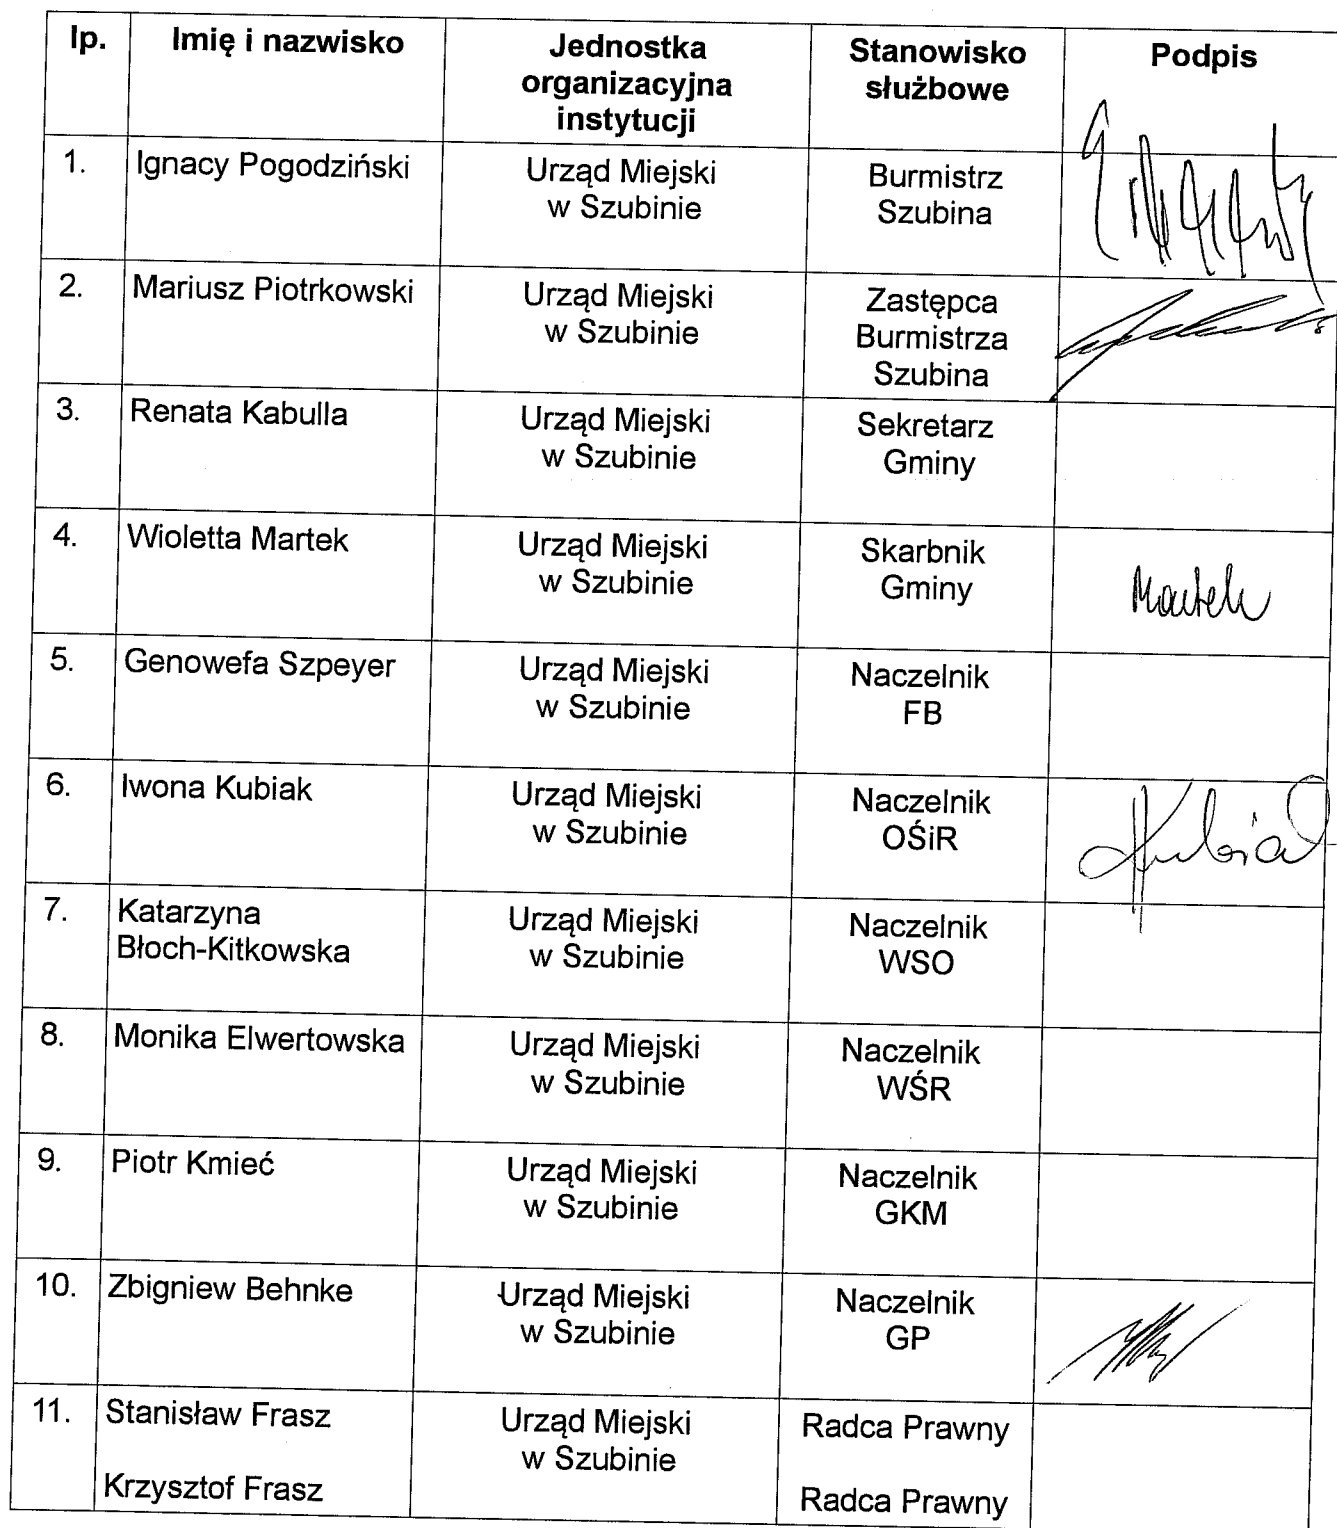 lp.
Imię i nazwisko
Jednostka
organizacyjna
instytucji
Stanowisko
służbowe
Podpis
1.
Ignacy Pogodziński
Urząd Miejski
w Szubinie
Burmistrz
Szubina
2.
Mariusz Piotrkowski
Urząd Miejski
w Szubinie
Zastępca
Burmistrza
Szubina
3.
Renata Kabulla
Urząd Miejski
w Szubinie
Sekretarz
Gminy
4.
Wioletta Martek
Urząd Miejski
w Szubinie
Skarbnik
Gminy
Martek
5.
Genowefa Szpeyer
Urząd Miejski
w Szubinie
Naczelnik
FB
6.
Iwona Kubiak
Urząd Miejski
w Szubinie
Naczelnik
OŚiR
Kubiak
7.
Katarzyna
Błoch-Kitkowska
Urząd Miejski
w Szubinie
Naczelnik
WSO
8.
Monika Elwertowska
Urząd Miejski
w Szubinie
Naczelnik
WŚR
9.
Piotr Kmieć
Urząd Miejski
w Szubinie
Naczelnik
GKM
10.
Zbigniew Behnke
Urząd Miejski
w Szubinie
Naczelnik
GP
11.
Stanisław Frasz
Krzysztof Frasz
Urząd Miejski
w Szubinie
Radca Prawny
Radca Prawny